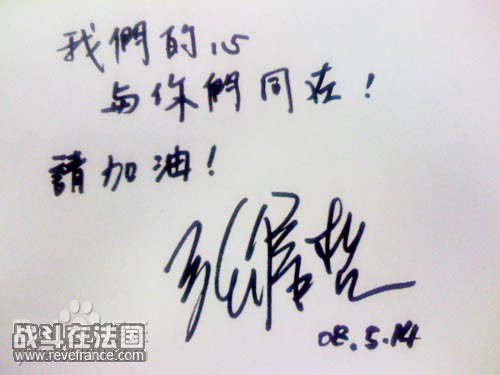 我們的心
与你們同在!
請加油!
張信哲
08.5.14
战斗在法国
www.revefrance.com